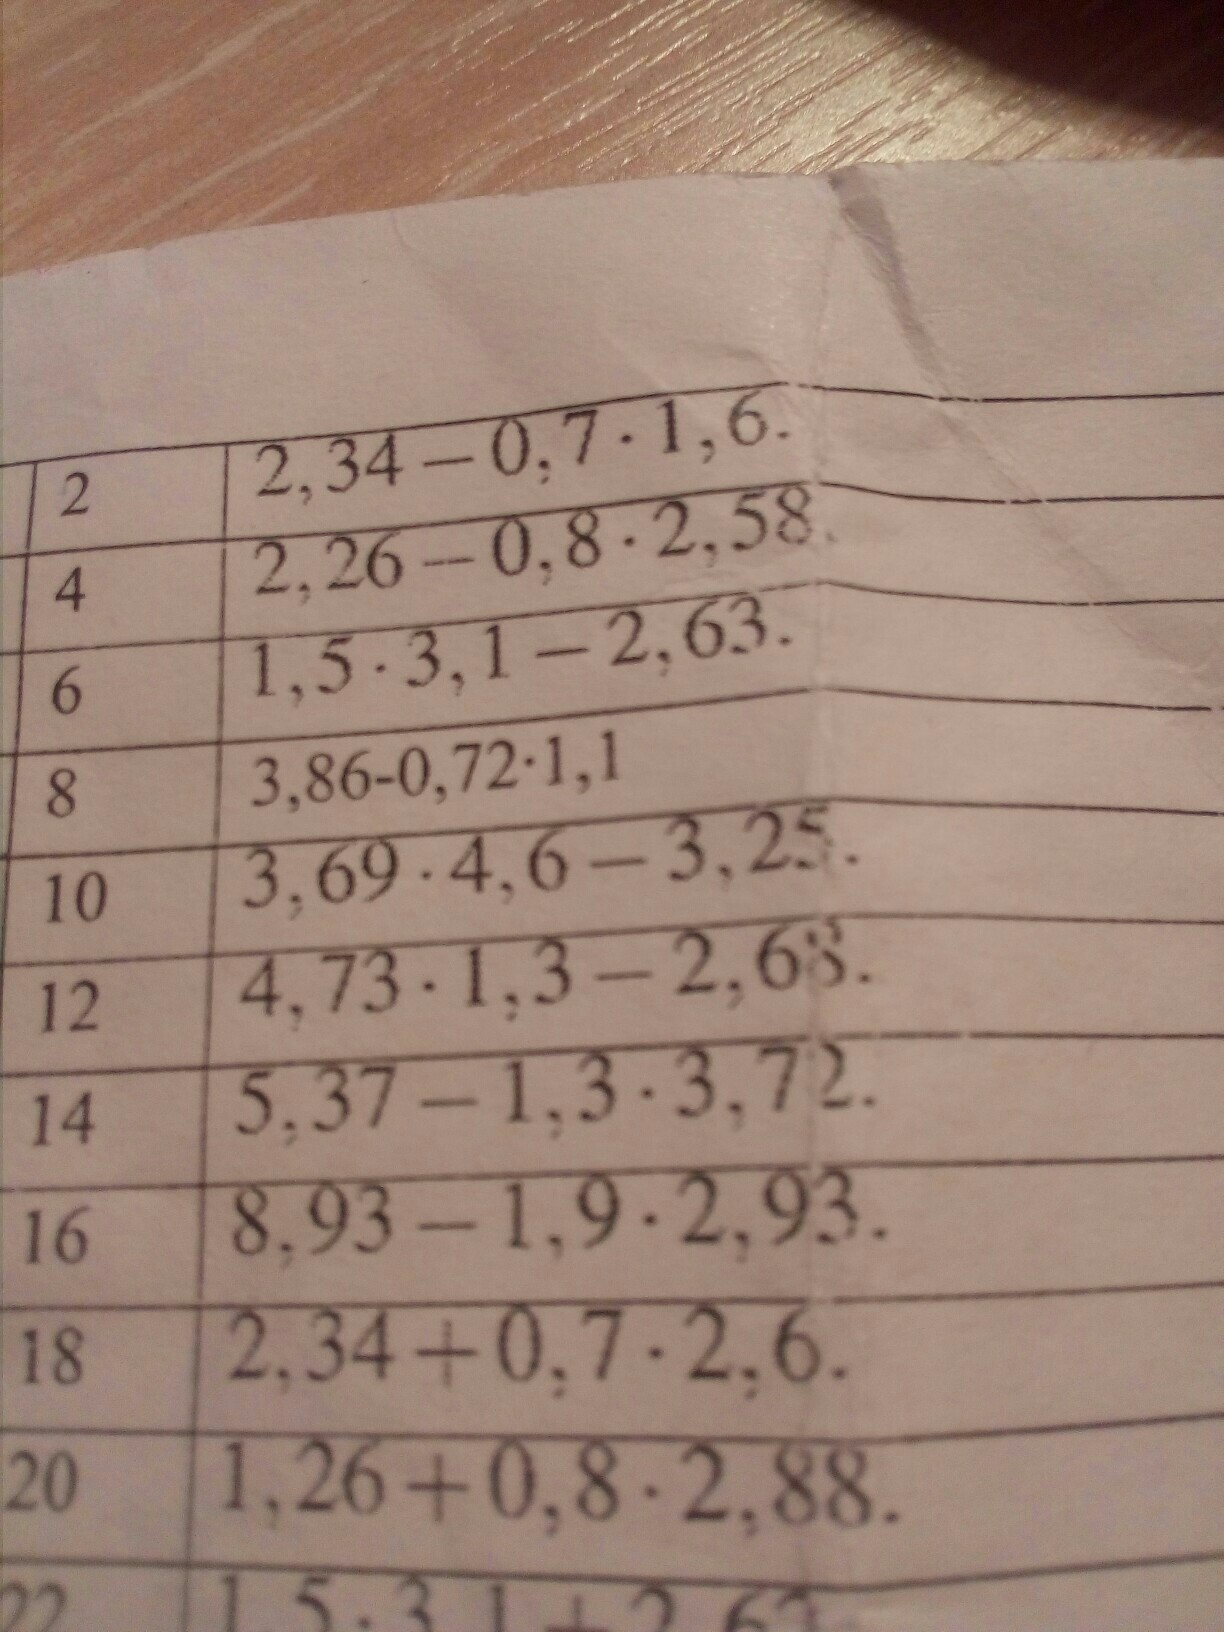 2 2,34 – 0,7 · 1,6.
4 2,26 – 0,8 · 2,58.
6 1,5 · 3,1 – 2,63.
8 3,86-0,72·1,1
10 3,69 · 4,6 – 3,25.
12 4,73 · 1,3 – 2,68.
14 5,37 – 1,3 · 3,72.
16 8,93 – 1,9 · 2,93.
18 2,34 + 0,7 · 2,6.
20 1,26 + 0,8 · 2,88.
22 1,5 · 3,1 + 2,63